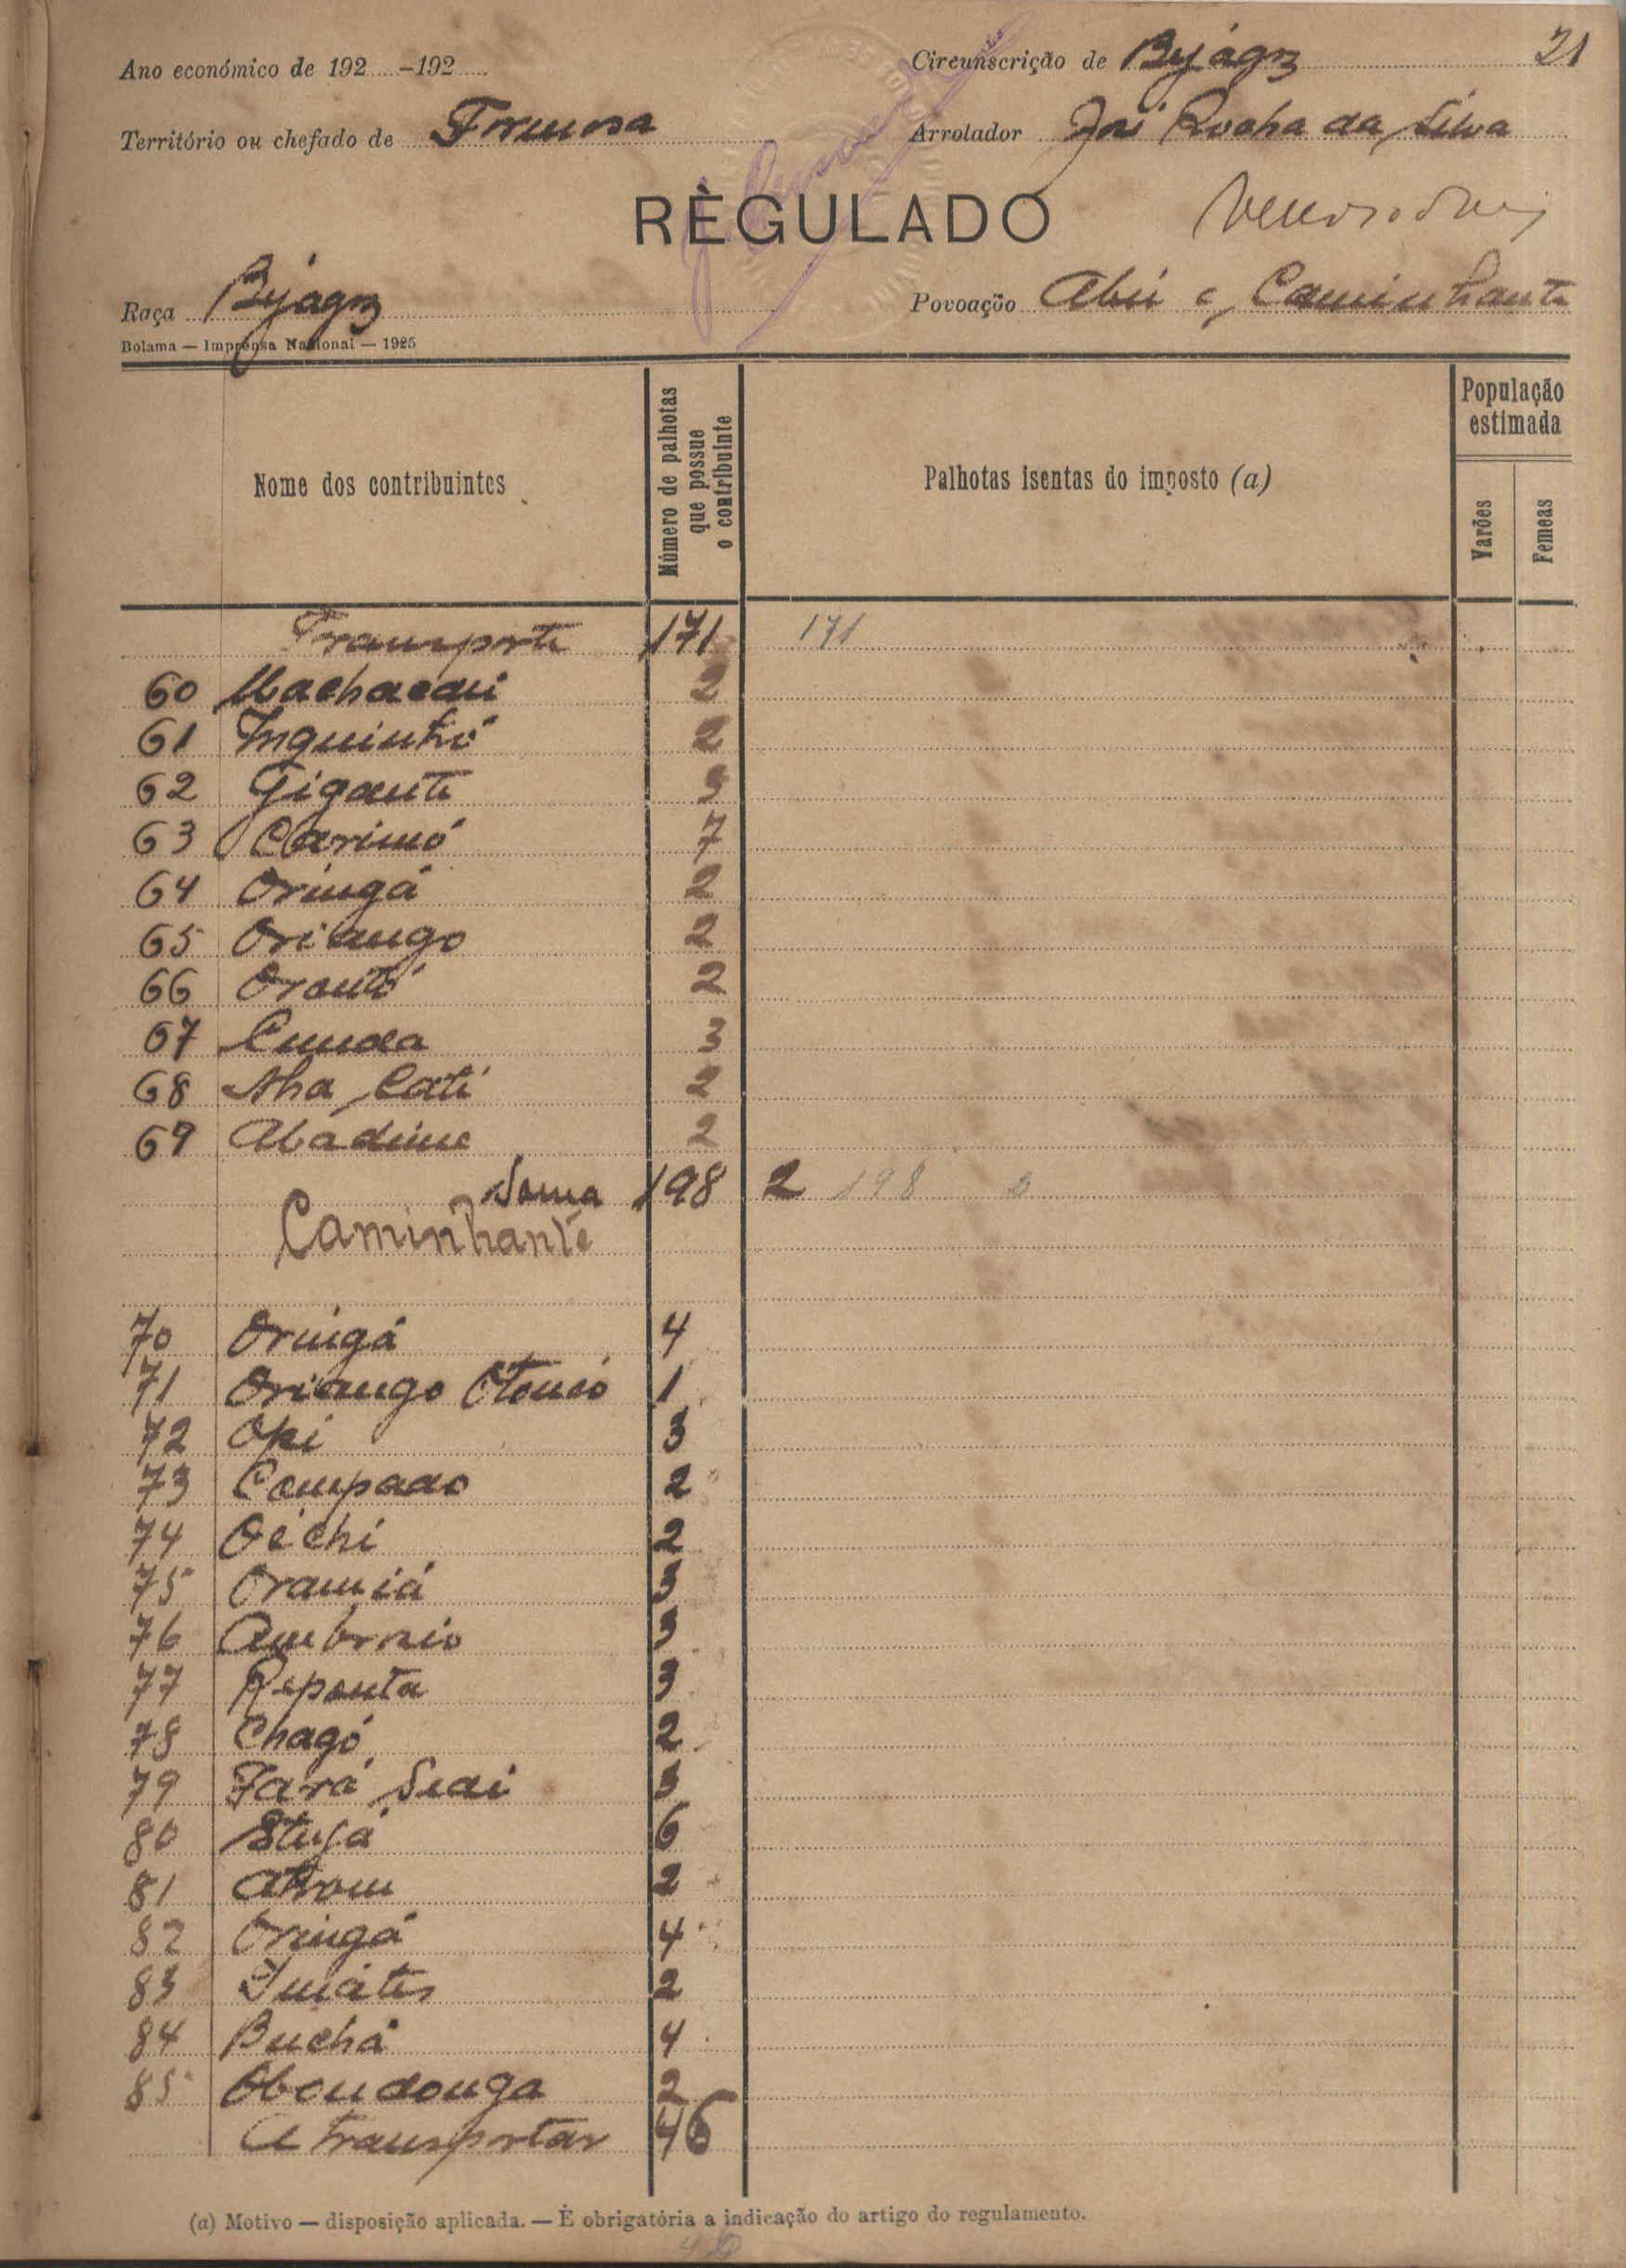 Ano económico de 192 -192
Circunscrição de Byágoz 21
Território ou chefado de Formosa
Arrolador José Rocha da Silva
REGULADO
Raça Byágoz
Povoação Abú e Caminhante
Bolama — Imprensa Nacional — 1925
Nome dos contribuintes
Número de palhotas que possue o contribuinte
Palhotas isentas do imposto (a)
População estimada
Varões
Femeas
Transporte 171 171
60 Machacau 2
61 Inquinhó 2
62 Gigante 3
63 Carimó 7
64 Oringá 2
65 Oriango 2
66 Orantó 2
67 Cunda 3
68 Nha Cati 2
69 Abadinne 2
Soma 198 2 198 2
Caminhante
70 Oringá 4
71 Oriango Otonió 1
72 Opi 3
73 Compado 2
74 Oéchi 2
75 Oramiá 3
76 Ambrozio 3
77 Reponta 3
78 Chagó 2
79 Fará Seai 3
80 Stujá 6
81 Atrom 2
82 Oringá 4
83 2
84 Buchá 4
85 Oboudonga 2
A transportar 46
(a) Motivo — disposição aplicada. — É obrigatória a indicação do artigo do regulamento.
46